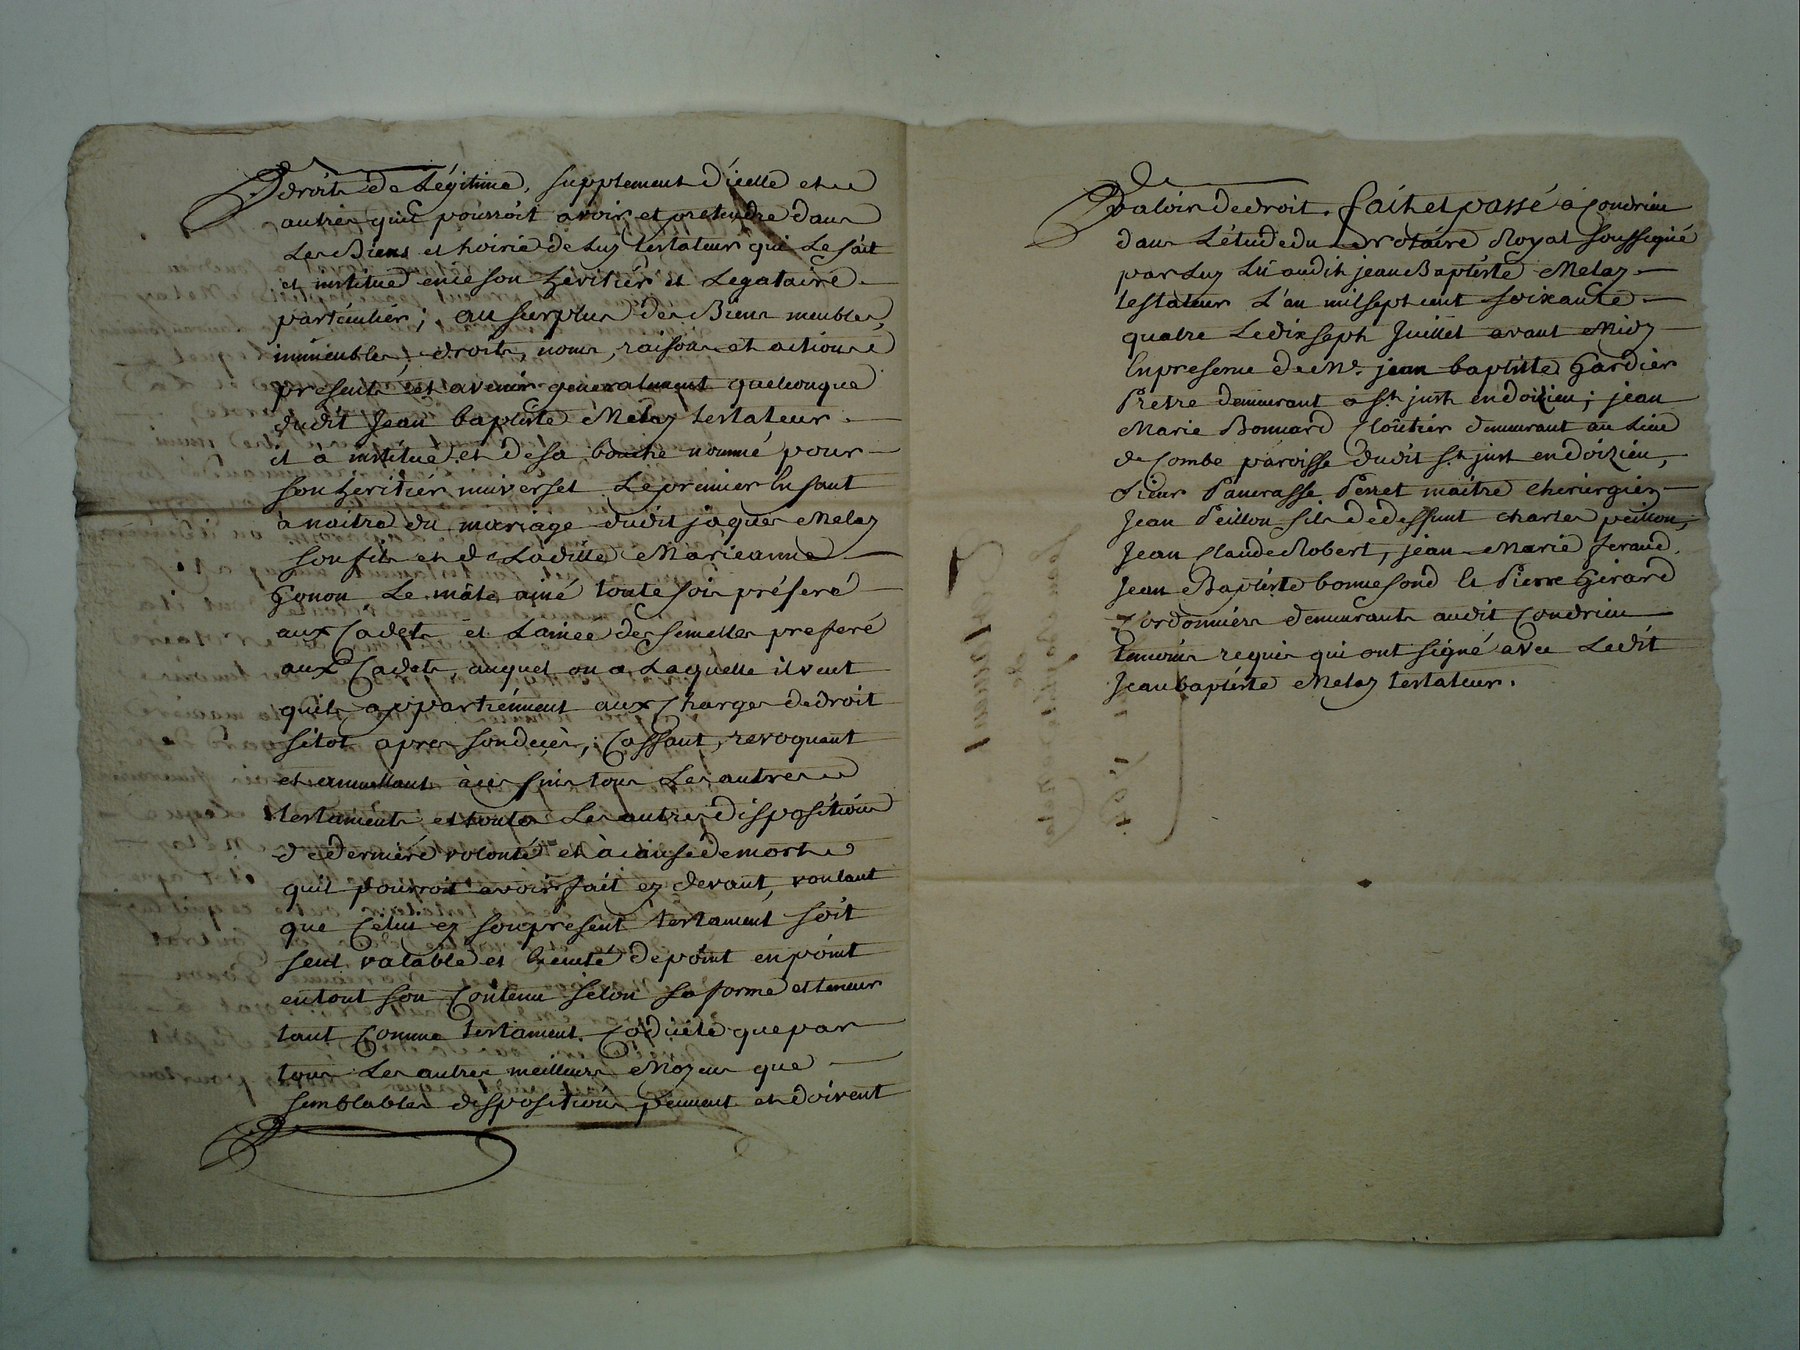 droits de Légitime, supplement d'icelle et
autres quil pourroit avoir et pretendre dans
Les Biens et hoirie de Luy testateur qui Le fait
et institue en ce son héritier et Legataire
particulier; au surplus des Biens meubles,
immeubles, droits, noms, raisons et actions
presents et avenir generalement quelconque
dudit Jean baptiste Melay testateur
il a institué et de sa bouche nommé pour
son heritier universel Le premier Enfant
a naitre du mariage dudit jaques Melay
son fils et de Laditte Marieanne
Gonon Le mâle ainé toutefois préferé
aux Cadets et L'ainee des femelles preferé
aux Cadets auquel ou a Laquelle il veut
quils appartiennent aux Charges de droit
sitot apres son decès, Cassant, revoquant
et annullant à ces fins tous Les autres
testaments et toutes Les autres dispositions
de derniere volonté et à cause de mort
quil pourroit avoir fait cy devant, voulant
que Celui cy son present testament soit
seul valable et Executé de point en point
en tout son Contenu selon sa forme et teneur
tant Comme testament Codicile que par
tous Les autres meilleurs Moyens que
semblables dispositions peuvent et doivent
valoir de droit. fait et passé à Condrieu
dans L'étude du Notaire Royal soussigné
par Luy Lû audit jean Baptiste Melay
testateur L'an mil sept cent soixante
quatre Le dix sept Juillet avant Midy
En presence de Mr. jean baptiste Gardier
Pretre demeurant a St. just en doizieu; jean
Marie Bonnard Cloutier demeurant au Lieu
de Combe paroisse dudit St. just en doizieu,
sieur Pancrasse Perret maitre chirurgien
Jean Peillon fils de deffunt charles peillon,
Jean Claude Robert, jean Marie feraud
Jean Baptiste bonnefond et Pierre Girard
Cordonniers demeurants audit Condrieu
temoins requis qui ont signé avec Ledit
Jean baptiste Melay testateur.